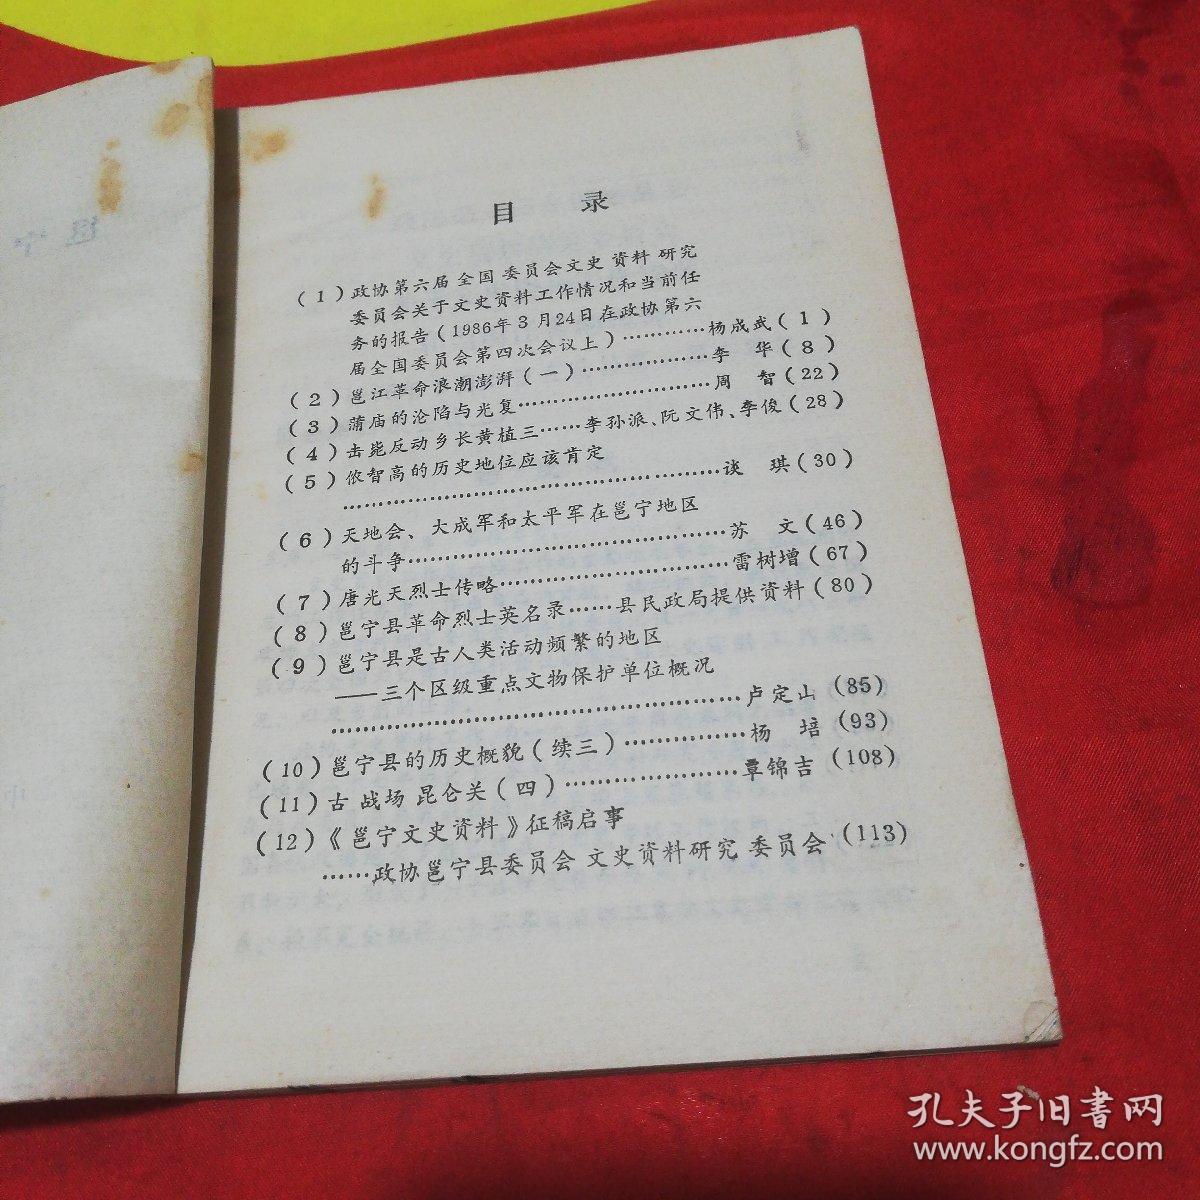 目 录
(1)政协第六届全国委员会文史资料研究
委员会关于文史资料工作情况和当前任
务的报告(1986年3月24日在政协第六
届全国委员会第四次会议上)…………杨成武(1)
(2)邕江革命浪潮澎湃(一)………………李 华(8)
(3)蒲庙的沦陷与光复………………………周 智(22)
(4)击毙反动乡长黄植三……李孙派、阮文伟、李俊(28)
(5)侬智高的历史地位应该肯定
………………………………………………谈 琪(30)
(6)天地会、大成军和太平军在邕宁地区
的斗争………………………………………苏 文(46)
(7)唐光天烈士传略……………………………雷树增(67)
(8)邕宁县革命烈士英名录……县民政局提供资料(80)
(9)邕宁县是古人类活动频繁的地区
——三个区级重点文物保护单位概况
………………………………………………卢定山(85)
(10)邕宁县的历史概貌(续三)……………杨 培(93)
(11)古战场昆仑关(四)……………………覃锦吉(108)
(12)《邕宁文史资料》征稿启事
……政协邕宁县委员会文史资料研究委员会(113)
孔夫子旧書网
www.kongfz.com